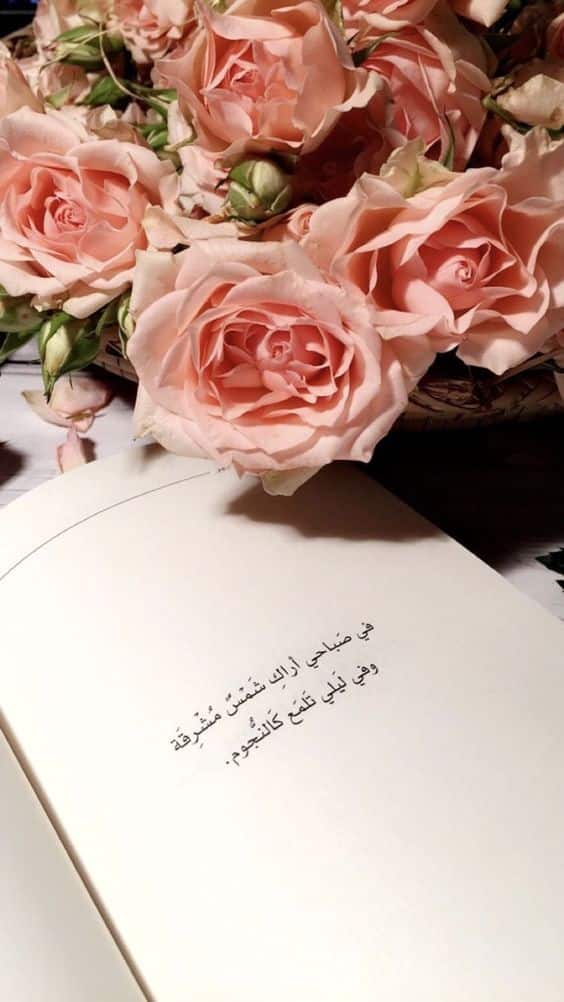 في صَباحي أراكِ شَمْسٌ مُشْرِقَة
وفي لَيَلي تَلمَع كَالنُّجُوم.